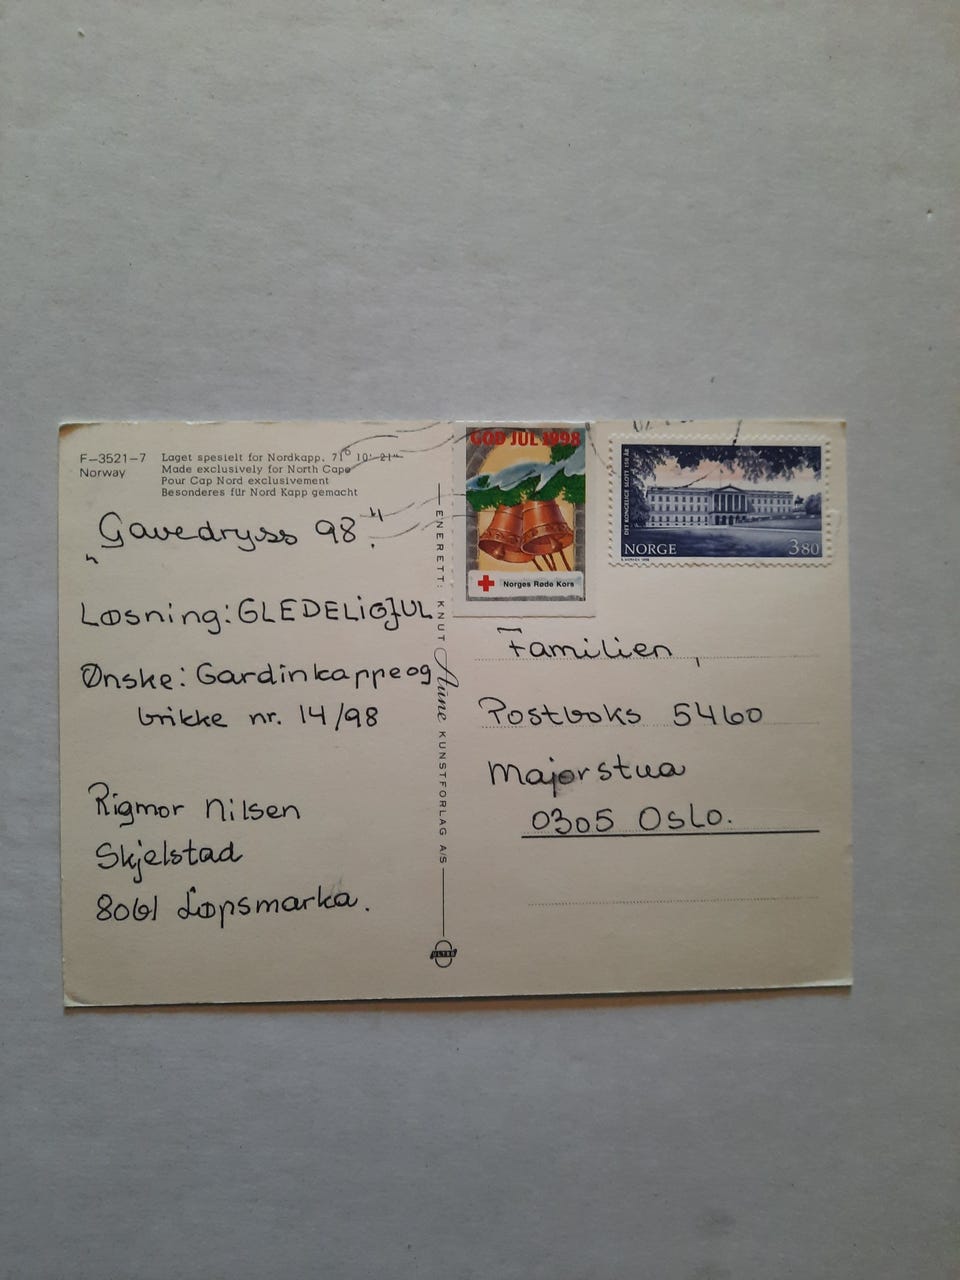 F-3521-7
Norway
Laget spesielt for Nordkapp. 71° 10' 21"
Made exclusively for North Cape
Pour Cap Nord exclusivement
Besonderes für Nord Kapp gemacht
„Gavedryss 98."
Løsning: GLEDELiGJUL
Ønske: Gardinkappe og
brikke nr. 14/98
Rigmor Nilsen
Skjelstad
8061 Løpsmarka.
ENERETT: KNUT Aune KUNSTFORLAG A/S
GOD JUL 1998
Norges Røde Kors
DET KONGELIGE SLOTT 150 ÅR
NORGE 380
Familien,
Postboks 5460
Majorstua
0305 Oslo.